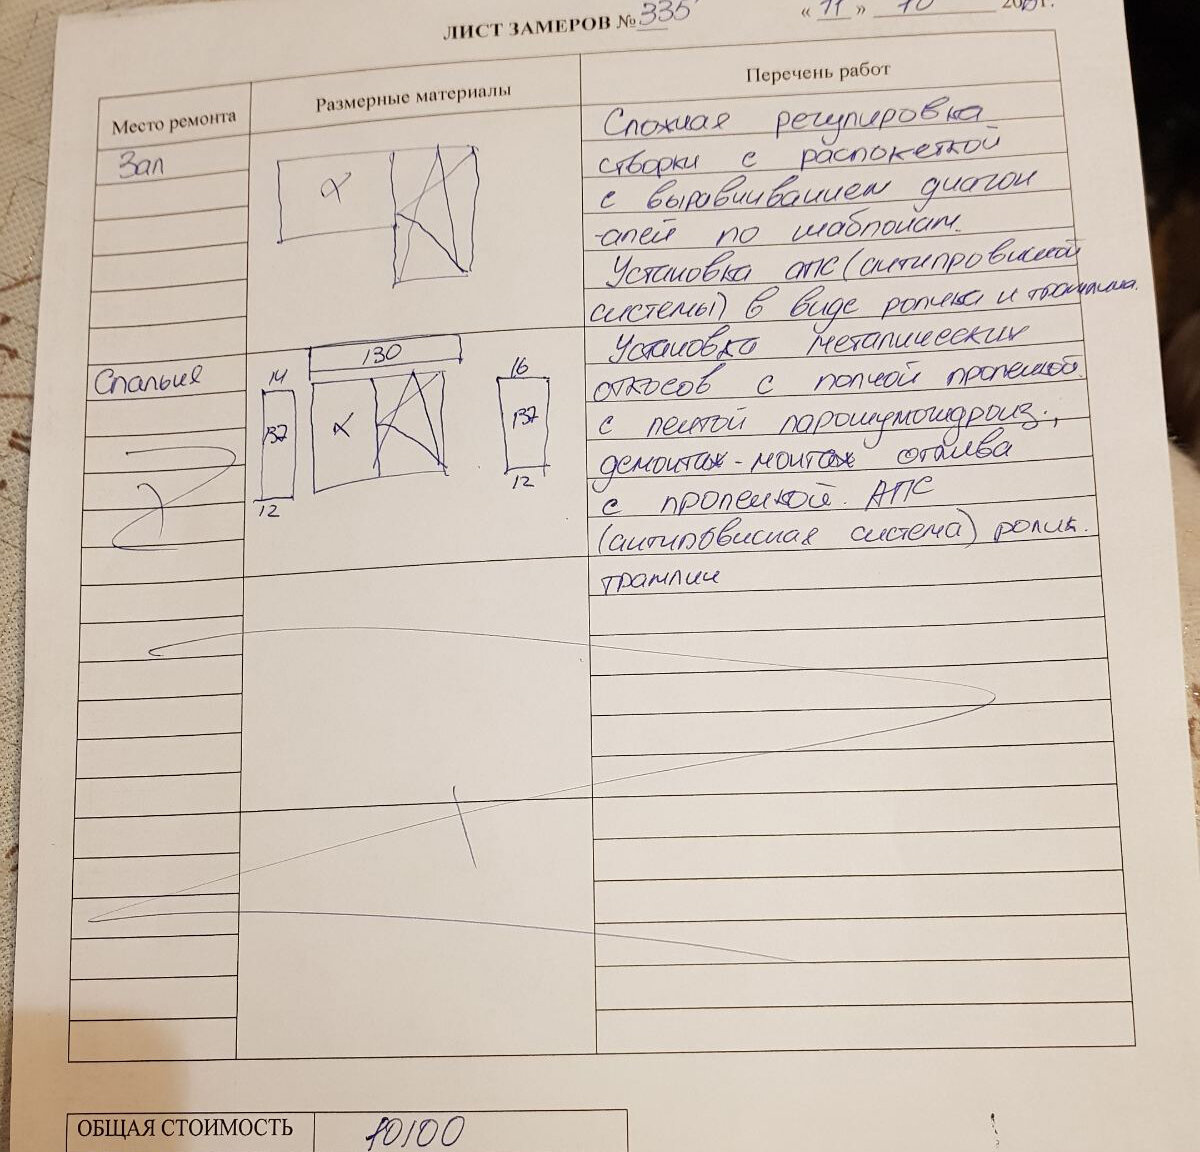 ЛИСТ ЗАМЕРОВ № 335 « 11 » 10 20 г.
Место ремонта Размерные материалы Перечень работ
Зал
α
Сложная регулировка
створки с распокеткой
с выравниванием диагон
-алей по шаблонам.
Установка АПС (антипровисной
системы) в виде ролика и трамплина.
Спальня
130
14
137
12
α
16
137
12
Установка металических
откосов с полной пропенкой.
с лентой парошумогидроиз.,
демонтаж-монтаж отлива
с пропенкой. АПС
(антиповисная система) ролик.
трамплин
ОБЩАЯ СТОИМОСТЬ 10100